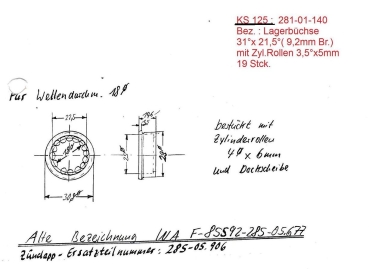 KS 125 : 281-01-140
Bez. : Lagerbüchse
31°x 21,5°( 9,2mm Br.)
mit Zyl.Rollen 3,5°x5mm
19 Stck.
Für Wellendurchm. 18ø
bestückt mit
Zylinderrollen
4ø x 6mm
und Deckscheibe
Alte Bezeichnung INA F-85592-285-05.677
Zündapp-Ersatzteilnummer: 285-05.906